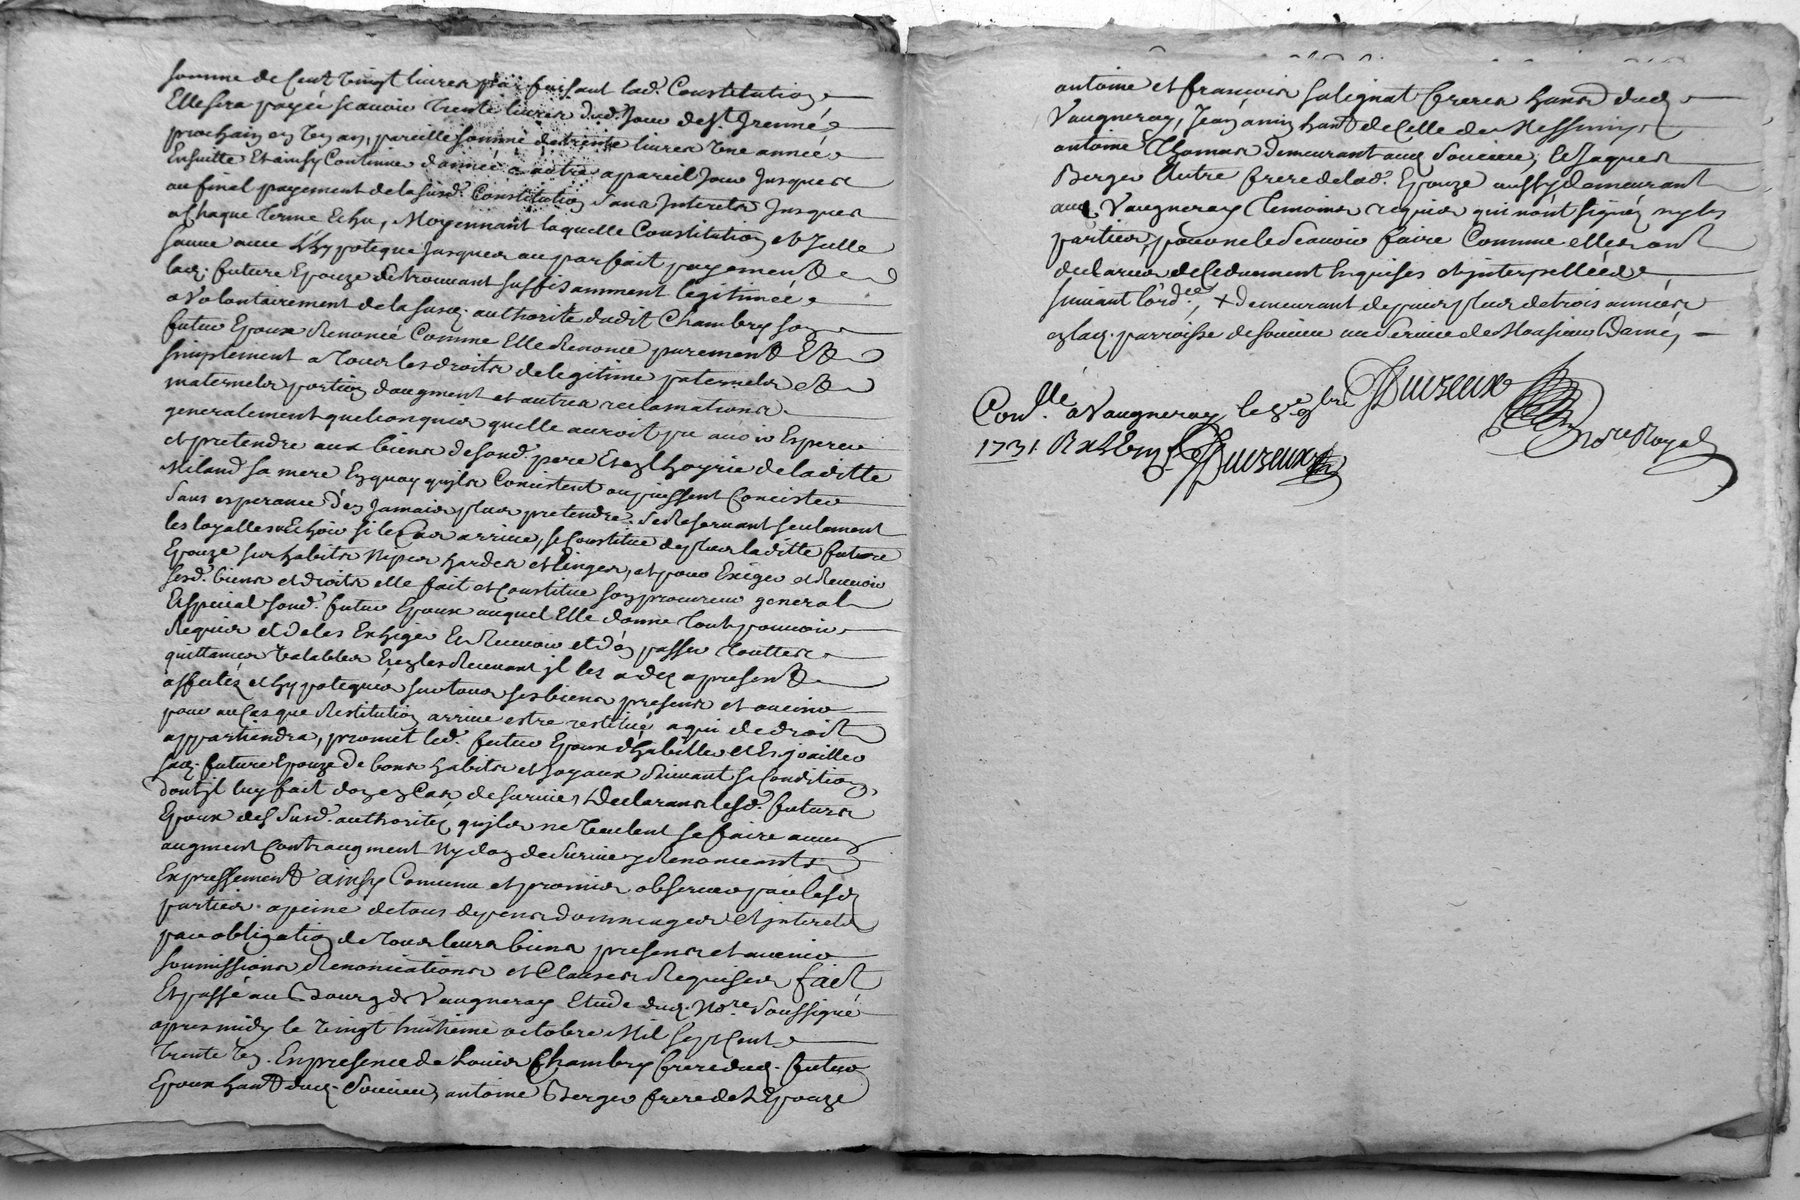 somme de Cent Vingt livres par faisant lad. Constitution
Elle sera payée scavoir trente livres dud. Jour de st. Irennée
prochain en un an, pareille somme de trente livres une année
Ensuitte Et ainsy Continue d'année a autre a pareil Jour Jusques
au final payement de la susd. Constitution sans Interets Jusques
a Chaque terme Echu, Moyennant laquelle Constitution et Icelle
sauve avec L'hypoteque Jusques au parfait payement
lad. future Epouze se trouvant suffisamment legitimée
a Volontairement de la susd. authorité dudit Chambry son
futur Epoux Renoncé Comme Elle Renonce purement Et
simplement a tous les droits de legitime paternels et
maternels portion d'augment et autres reclamations
generalement quelconques quelle auroit pu avoir Esperer
et pretendre aux biens de sond. pere Et en l'hoyrie de laditte
Miland sa mere En quoy qu'ils Concistent ou puissent Concister
sans esperance d'en Jamais plus pretendre. se Reservant seulement
les loyalles Echoir si le Cas arrive, se Constitue de plus laditte future
Epouze ses habits Nipes hardes et linges, et pour Exiger et Recevoir
sesd. biens et droits elle fait et Constitue son procureur general
Et special sond. futur Epoux auquel Elle donne tout pouvoir
Requis et de les Exhiger Et Recevoir et d'en passer touttes
quittances Valables En les Recevant il les a dez a present
affectez et hypotequés sur tous ses biens presens et avenir
pour au Cas que Restitution arrive estre restitué a qui de droit
appartiendra, promet led. futur Epoux d'habiller et Enjoailler
sad. future Epouze de bons habits et joyaux suivant sa Condition,
dont il luy fait don en Cas de survie, Declarans lesd. futurs
Epoux des susd. authoritéz qu'ils ne Veulent se faire aucun
augment Contraugment Ny don de survie y Renonceants
Expressement ainsy Convenu et promis observer par lesd.
parties a peine de tous depens dommages et interets
par obligation de tous leurs biens presens et avenir
soumissions Renonciations et Clauses Requises fait
Et passé au Bourg de Vaugneray Etude dud. Nore. soussigné
apres midy le Vingt huitieme octobre Mil sept Cent
trente Un. En presence de Louis Chambry frere dud. futur
Epoux habt. dud. Soucieu, antoine Berger frere de l'Epouze
antoine et françois salignat freres habts. dud.
Vaugneray, Jean habt. de Celle de Messimy,
antoine Thomas demeurant aud. Soucieu, et Jaques
Berger Autre frere de lad. Epouze aussy demeurant
aud. Vaugneray temoins requis qui n'ont signéz ny les
parties, pour ne le scavoir faire Comme elles ont
declarées de ce duement Enquises et interpellées
suivant l'ord.ce, + demeurant depuis plus de trois années
en lad. parroisse de soucieu au service de Monsieur Damé,
Conllé. à Vaugneray, le 5e 9bre
1731. Rx
nore Royal